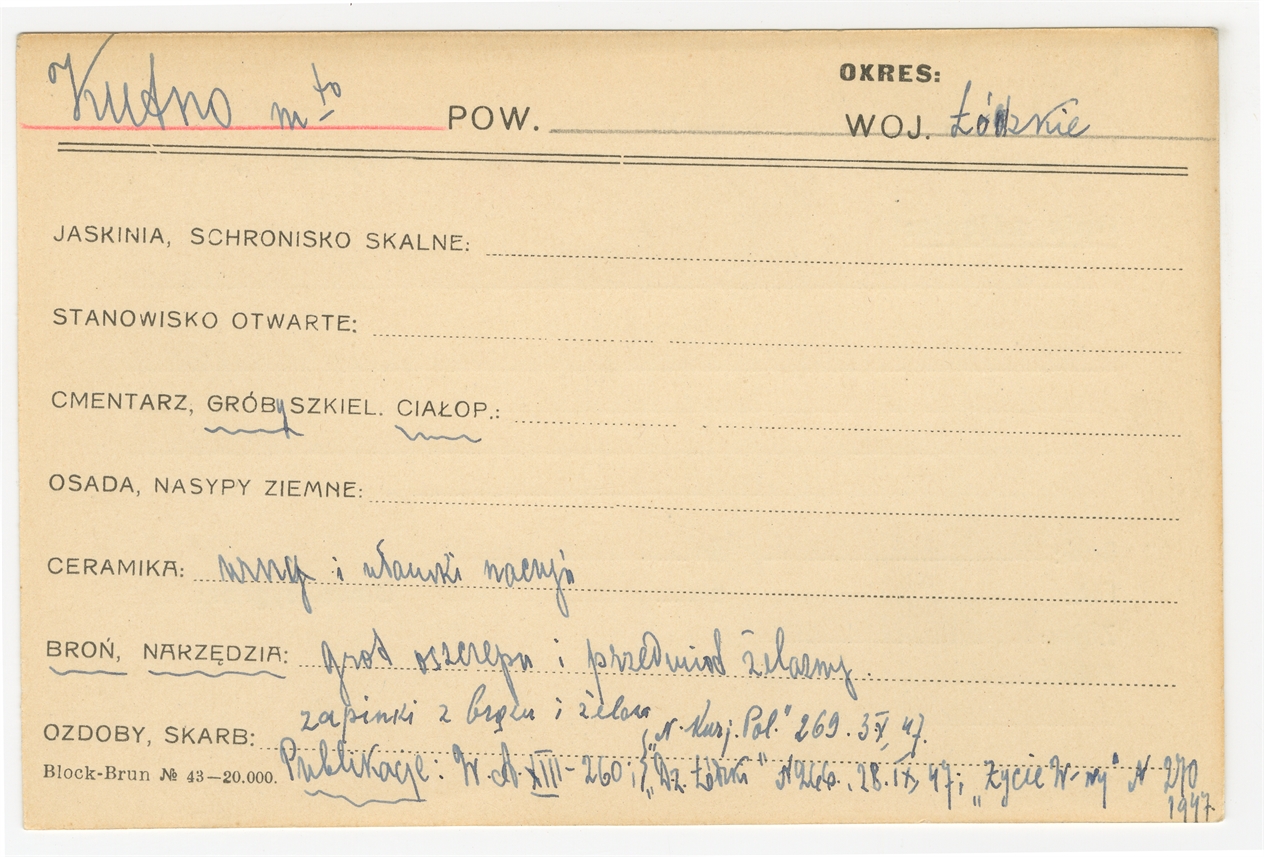 Kutno m-to POW. OKRES:
WOJ. Łódzkie
JASKINIA, SCHRONISKO SKALNE:
STANOWISKO OTWARTE:
CMENTARZ, GRÓBy SZKIEL. CIAŁOP.:
OSADA, NASYPY ZIEMNE:
CERAMIKA: urny i ułamki naczyń
BROŃ, NARZĘDZIA: grot oszczepu i przedmiot żelazny.
zapinki z brązu i żelaza
OZDOBY, SKARB: "N. Kurj. Pol." 269. 3 X, 47.
Block-Brun № 43—20.000. Publikacje: W. A XIII - 260; "Dz. Łódzki" N 266. 28. IX, 47; "Życie W-wy" N 270
1947